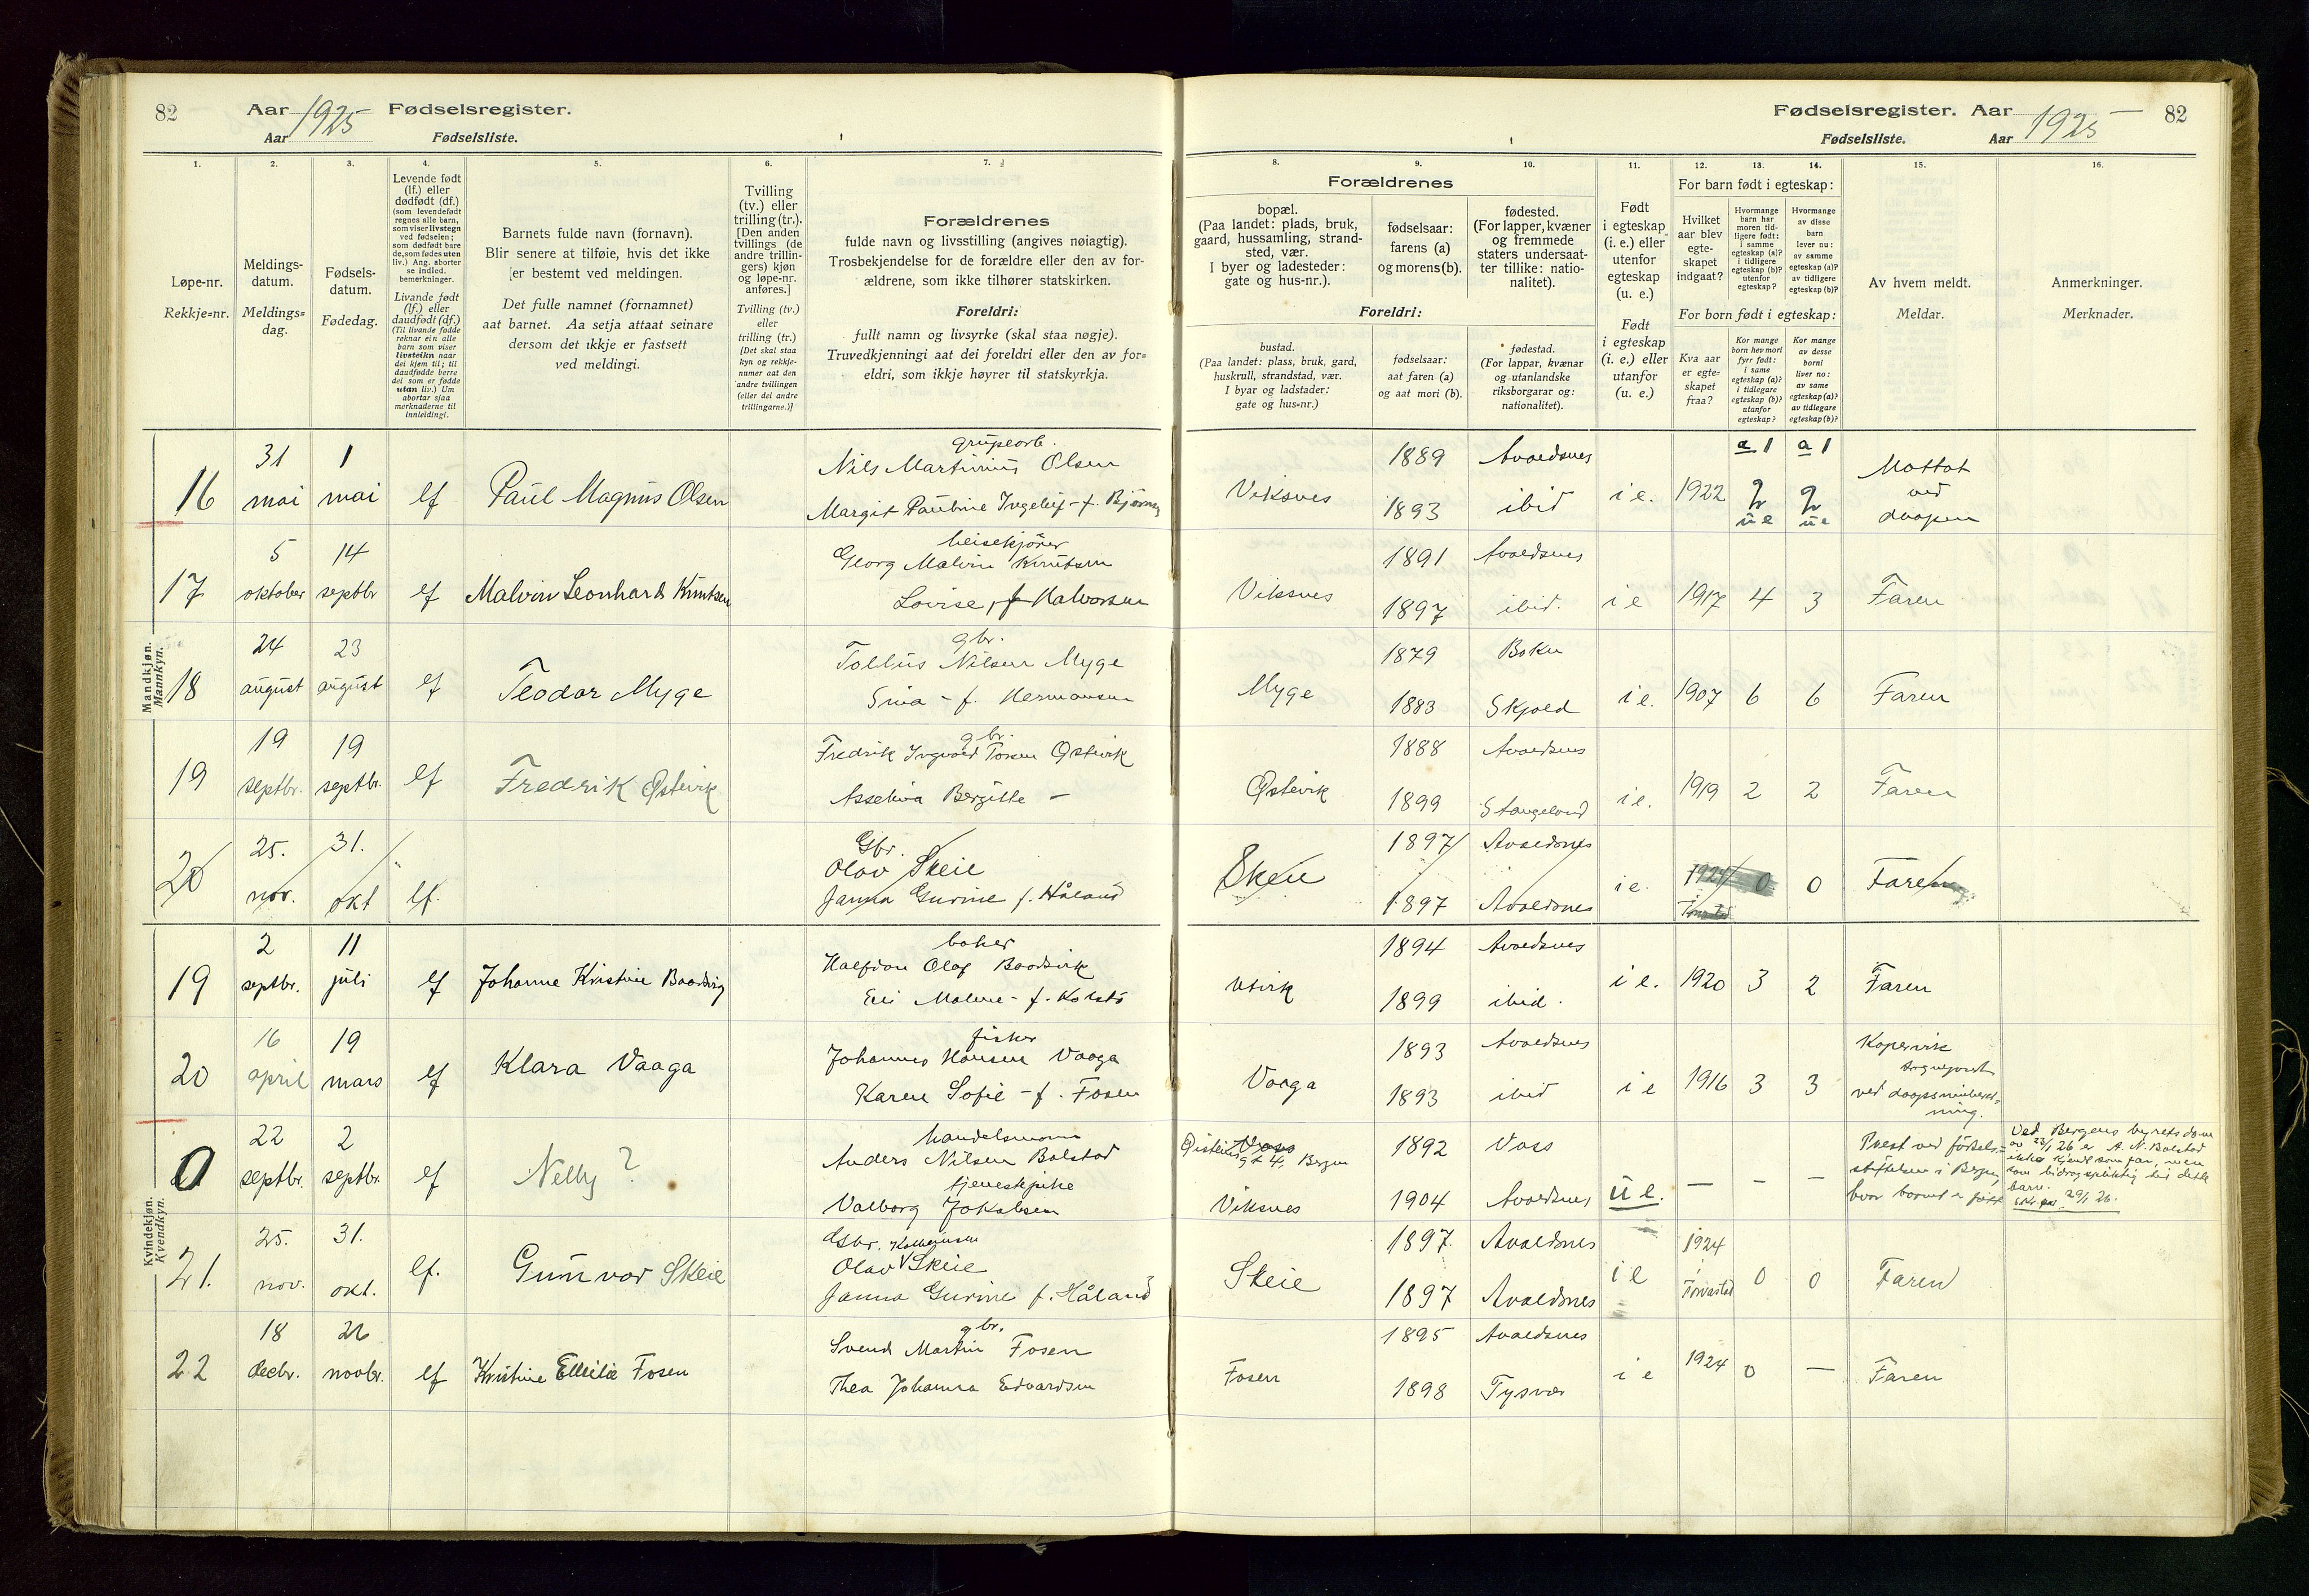 82
Aar 1925 Fødselsregister.
Aar Fødselsliste.
1.
2.
3.
4.
5.
6.
7.
Løpe-nr.
Rekkje=nr.
Meldings-
datum.
Meldings=
dag.
Fødsels-
datum.
Fødedag.
Levende født
(lf.) eller
dødfødt (df.)
(som levendefødt
regnes alle barn,
som viser livstegn
ved fødselen;
som dødfødt bare
de, som fødes uten
liv.) Ang. aborter
se indled.
bemerkninger.
Livande født
(lf.) eller
daudfødt (df.)
(Til livande fødde
reknar ein alle
barn som viser
livsteikn naar
dei kjem til; til
daudfødde berre
dei som er fødde
utan liv.) Um
abortar sjaa
merknaderne til
innleidingi.
Barnets fulde navn (fornavn).
Blir senere at tilføie, hvis det ikke
er bestemt ved meldingen.
Det fulle namnet (fornamnet)
aat barnet. Aa setja attaat seinare
dersom det ikkje er fastsett
ved meldingi.
Tvilling
(tv.) eller
trilling (tr.).
[Den anden
tvillings (de
andre trillin-
gers) kjøn
og løpe-nr.
anføres.]
Tvilling (tv.)
eller
trilling (tr.)
[Det skal staa
kyn og rekkje-
numer aat den
andre tvillingen
(eller dei andre
trillingarne.)]
Forældrenes
fulde navn og livsstilling (angives nøiagtig).
Trosbekjendelse for de forældre eller den av for-
ældrene, som ikke tilhører statskirken.
Foreldri:
fullt namn og livsyrke (skal staa nøgje).
Truvedkjenningi aat dei foreldri eller den av for=
eldri, som ikkje høyrer til statskyrkja.
Mandkjøn.
Mannkyn.
16
31
mai
1
mai
lf
Paul Magnus Olsen
grubearb.
Nils Martinius Olsen
Margit Pauline Ingeleif - f.
17
5
oktober
14
septbr
lf
Malvin Leonhard Knutsen
heisekjører
Georg Malvin Knutsen
Lovise, f Halvorsen
18
24
august
23
august
lf
Teodor Myge
gbr.
Tollius Nilsen Myge
Sina - f. Hermansen
19
19
septbr.
19
septbr.
lf
Fredrik Østevik
gbr.
Fredrik Ingvald Tonsen Østevik
Asseline Bergitte -
20
25.
nov.
31.
okt
lf.
Gbr.
Olav Skeie
Janna Gurine f. Håland
Kvindekjøn.
Kvendkyn.
19
2
septbr.
11
juli
lf
Johanne Kristine Baadsvig
baker
Halfdan Olaf Baadsvik
Eli Malene - f. Kolstø
20
16
april
19
mars
lf
Klara Vaaga
fisker
Johannes Hansen Vaaga
Karen Sofie - f. Fosen
0
22
septbr.
2
septbr.
lf
Nelly ?
handelsmann
Anders Nilsen Bolstad
tjenestepike
Valborg Jakobsen
21.
25.
nov.
31.
okt.
lf.
Gunvor Skeie
Gbr.
Olav Skeie
Janna Gurine f. Håland
22
18
decbr.
26
novbr.
lf
Kristine Emilie Fosen
gbr.
Svend Martin Fosen
Thea Johanna Edvardsen
Fødselsregister. Aar 1925
82
Fødselsliste. Aar
8.
9.
10.
11.
12.
13.
14.
15.
16.
Forældrenes
bopæl.
(Paa landet: plads, bruk,
gaard, hussamling, strand-
sted, vær.
I byer og ladesteder:
gate og hus-nr.).
fødselsaar:
farens (a)
og morens (b).
fødested.
(For lapper, kvæner
og fremmede
staters undersaat-
ter tillike: natio-
nalitet).
Foreldri:
bustad.
(Paa landet: plass, bruk, gard,
huskrull, strandstad, vær.
I byar og ladstader:
gate og hus=nr.)
fødselsaar:
aat faren (a)
og aat mori (b).
fødestad.
(For lappar, kvænar
og utanlandske
riksborgarar og:
nationalitet).
Født
i egteskap
(i. e.) eller
utenfor
egteskap
(u. e.)
Født
i egteskap
(i. e.) eller
utanfor
(u. e.)
For barn født i egteskap:
Hvilket
aar blev
egte-
skapet
indgaat?
Hvormange
barn har
moren tid-
ligere født:
i samme
egteskap (a)?
i tidligere
egteskap (b)?
utenfor
egteskap?
Hvormange
av disse
barn
lever nu:
av samme
egteskap (a)?
av tidligere
egteskap (b)?
For born født i egteskap:
Kva aar
er egte=
skapet
fraa?
Kor mange
born hev mori
fyrr født:
i same
egteskap (a)?
i tidlegare
egteskap (b)?
utanfor
egteskap?
Kor mange
av desse
borni
liver no:
av same
egteskap (a)?
av tidlegare
egteskap (b)?
Av hvem meldt.
Meldar.
Anmerkninger.
Merknader.
Viksnes
1889
1893
Avaldsnes
ibid
i e.
1922
a 1
u e
a 1
u e
Mottat
ved
daapen
Viksnes
1891
1897
Avaldsnes
ibid.
i e
1917
4
3
Faren
Myge
1879
1883
Bokn
Skjold
i e.
1907
6
6
Faren
Østevik
1888
1899
Avaldsnes
Stangeland
i e.
1919
2
2
Faren
Skeie
1897
1897
Avaldsnes
Avaldsnes
i e.
1924
0
0
Faren
Utvik
1894
1899
Avaldsnes
ibid.
i e.
1920
3
2
Faren
Vaaga
1893
1893
Avaldsnes
ibid
i e
1916
3
3
Kopervik
sogneprest
ved daapsinnberet=
ning.
Voss
Bergen
Viksnes
1892
1904
Voss
Avaldsnes
u e.
—
—
—
Prest ved fødsels=
stiftelsen i Bergen,
hvor barnet er født
Ved Bergens byretsdom
av 23/1 26 er A. N. Bolstad
ikke kjendt som far, men
som bidragspliktig til dette
barn.
29/1 26.
Skeie
1897.
1897
Avaldsnes
Avaldsnes
i e
1924
i
Torvastad
0
0
Faren
Fosen
1895
1898
Avaldsnes
Tysvær
i e
1924
0
—
Faren